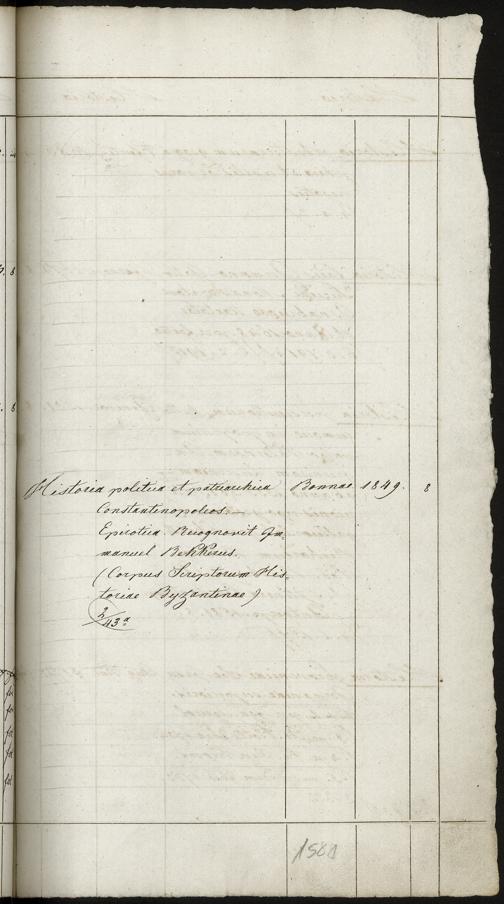 Historia politica et patriarchica Bonnae 1849. 8
Constantinopoleos.—
Epirotica Recognovit Im-
manuel Bekkerus.
(Corpus Scriptorum His-
toriae Byzantinae)
2/43a
1580